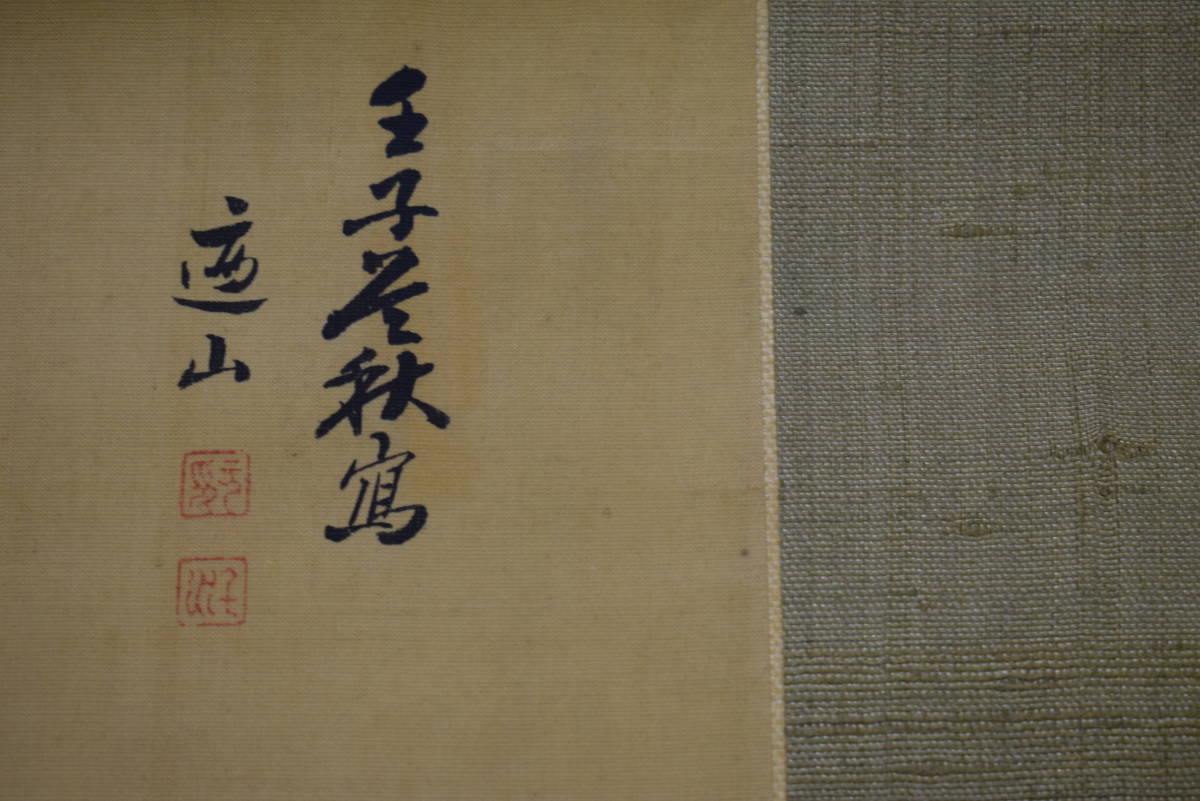 壬子暮秋寫
適山